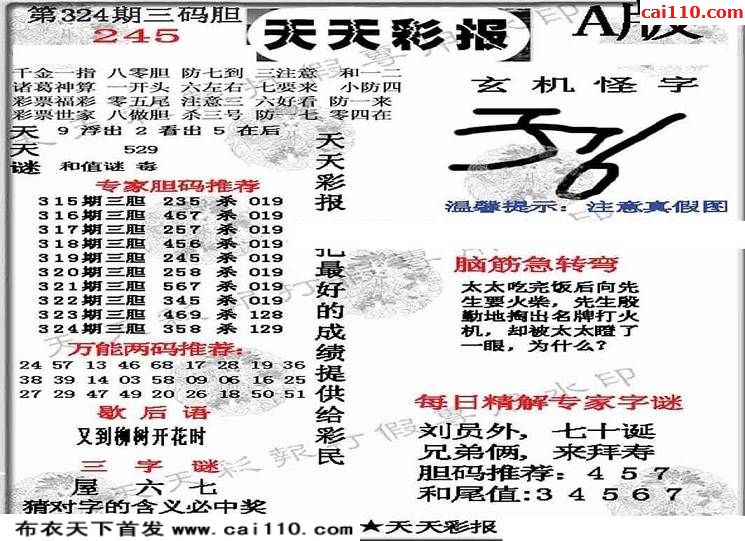 第324期三码胆
245
天天彩报
A版
cai110.com
千金一指 八零胆 防七到 三注意 和一二
诸葛神算 一开头 六左右 七要来 小防四
彩票福彩 零五尾 注意三 六好看 防一来
彩票世家 八做胆 杀三号 防一七 零四在
天 9浮出2看出5在后
天 529
谜 和值谜 毒
专家胆码推荐
315期三胆 235 杀 019
316期三胆 467 杀 019
317期三胆 257 杀 019
318期三胆 456 杀 019
319期三胆 245 杀 019
320期三胆 258 杀 019
321期三胆 567 杀 019
322期三胆 345 杀 019
323期三胆 469 杀 128
324期三胆 358 杀 129
万能两码推荐:
24 57 13 46 68 17 28 19 36
38 39 14 03 58 09 06 16 25
27 29 47 49 20 26 18 50 51
歇后语
又到柳树开花时
三字谜
屋 六 七
猜对字的含义必中奖
天天彩报
把最好的成绩提供给彩民
玄机怪字
温馨提示:注意真假图
脑筋急转弯
太太吃完饭后向先
生要火柴,先生殷
勤地掏出名牌打火
机,却被太太瞪了
一眼,为什么?
每日精解专家字谜
刘员外,七十诞
兄弟俩,来拜寿
胆码推荐:457
和尾值:34567
布衣天下首发 www.cai110.com ★天天彩报